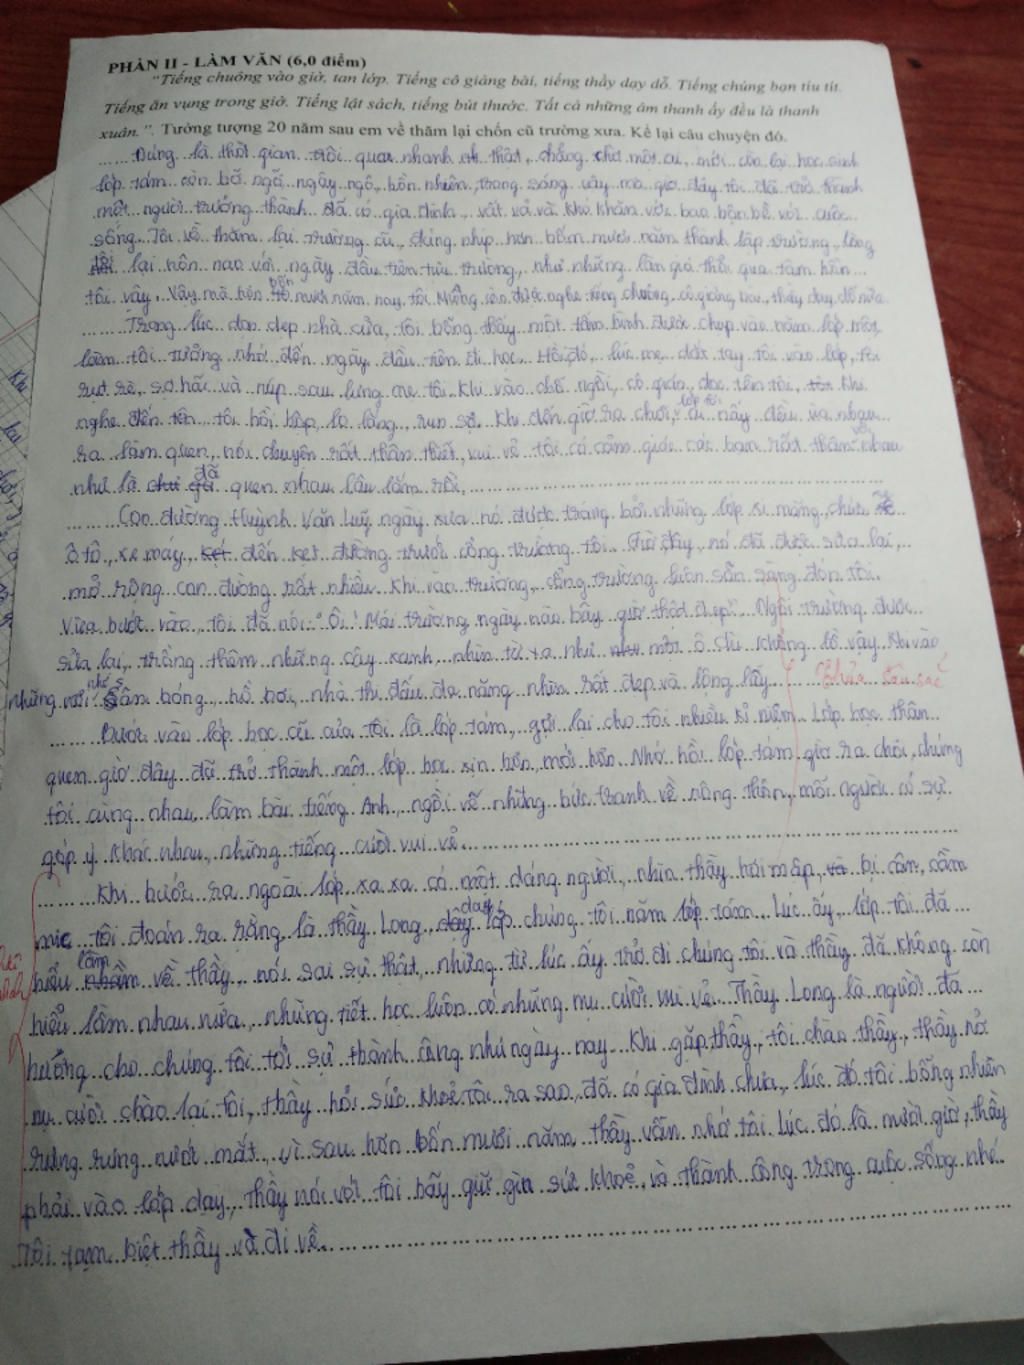 PHẦN II - LÀM VĂN (6,0 điểm)
"Tiếng chuông vào giờ, tan lớp. Tiếng cô giảng bài, tiếng thầy dạy dỗ. Tiếng chúng bạn tíu tít.
Tiếng ăn vụng trong giờ. Tiếng lật sách, tiếng bút thước. Tất cả những âm thanh ấy đều là thanh
xuân.". Tưởng tượng 20 năm sau em về thăm lại chốn cũ trường xưa. Kể lại câu chuyện đó.
Đúng là thời gian trôi qua nhanh thật, chẳng chờ một ai, mới còn là học sinh
lớp tám còn bỡ ngỡ ngây ngô, hồn nhiên, trong sáng vậy mà giờ đây tôi đã trở thành
một người trưởng thành đã có gia đình, vất vả và khó khăn với bao bộn bề với cuộc
sống. Tôi về thăm lại trường cũ, đúng nhịp hơn bốn mươi năm thành lập trường, lòng
tôi lại nôn nao với ngày đầu tiên tựu trường, như những làn gió thổi qua tâm hồn
tôi vậy. Vậy mà hơn bốn mươi năm nay tôi không còn được nghe tiếng chuông, cô giảng bài, thầy dạy dỗ nữa.
Trong lúc dọn dẹp nhà cửa, tôi bỗng thấy một tấm hình được chụp vào năm lớp một,
làm tôi tưởng nhớ đến ngày đầu tiên đi học. Hồi đó, lúc mẹ dắt tay tôi vào lớp, tôi
rụt rè, sợ hãi và núp sau lưng mẹ tôi. Khi vào chỗ ngồi, cô giáo đọc tên tôi, khi
nghe đến tên, tôi hồi hộp, lo lắng, run sợ. Khi đến giờ ra chơi, lớp tôi ai nấy đều ùa nhau
ra làm quen, nói chuyện rất thân thiết, vui vẻ tôi có cảm giác các bạn rất thân với nhau
như là đã quen nhau lâu lắm rồi.
Con đường Huỳnh Văn Luỹ ngày xưa nó được tráng bởi những lớp xi măng, chứa
ô tô, xe máy, kẹt đến kẹt đường trước cổng trường tôi. Giờ đây, nó đã được sửa lại,
mở rộng con đường rất nhiều. Khi vào trường, cổng trường luôn sẵn sàng đón tôi.
Vừa bước vào, tôi đã nói: "Ôi! Mái trường ngày nào bây giờ thật đẹp!". Ngôi trường được
sửa lại, trồng thêm những cây xanh, nhìn từ xa như một ô dù khổng lồ vậy. Khi vào
những với nhớ sân bóng, hồ bơi, nhà thi đấu đa năng nhìn rất đẹp và lộng lẫy.
Chưa sâu sắc
Bước vào lớp học cũ của tôi là lớp tám, gợi lại cho tôi nhiều kỉ niệm. Lớp học thân
quen giờ đây đã trở thành một lớp học xịn hơn, mới hơn. Nhớ hồi lớp tám giờ ra chơi, chúng
tôi cùng nhau làm bài tiếng Anh, ngồi vẽ những bức tranh về nông thôn, mỗi người có sự
góp ý khác nhau, những tiếng cười vui vẻ.
Khi bước ra ngoài lớp xa xa có một dáng người, nhìn thầy hơi mập, và bị cận, cầm
mic tôi đoán ra rằng là thầy Long, dạy lớp chúng tôi năm lớp tám. Lúc ấy, lớp tôi đã
hiểu lầm về thầy, nói sai sự thật, nhưng từ lúc ấy trở đi chúng tôi và thầy đã không còn
hiểu lầm nhau nữa, những tiết học luôn có những nụ cười vui vẻ. Thầy Long là người đã
hướng cho chúng tôi tới sự thành công như ngày nay. Khi gặp thầy, tôi chào thầy, thầy nở
nụ cười chào lại tôi, thầy hỏi sức khoẻ tôi ra sao, đã có gia đình chưa, lúc đó tôi bỗng nhiên
rưng rưng nước mắt, vì sau hơn bốn mươi năm thầy vẫn nhớ tôi. Lúc đó là mười giờ, thầy
phải vào lớp dạy, thầy nói với tôi hãy giữ gìn sức khoẻ, và thành công trong cuộc sống nhé.
Tôi tạm biệt thầy và đi về.